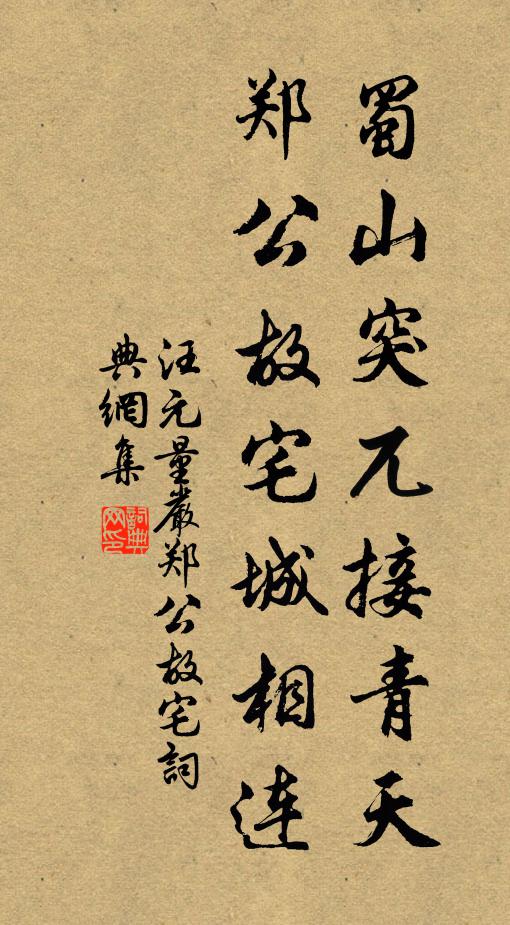 蜀山突兀接青天
郑公故宅城相连
汪元量嚴郑公故宅詞
典網集
詞典网印